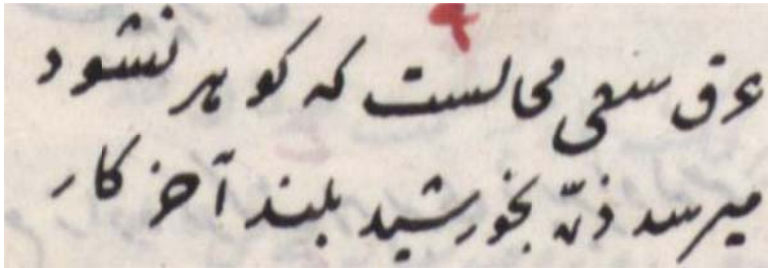 عرق سعی محالست که کوهر نشود
میرسد ذرّه بخورشید بلند آخر کار